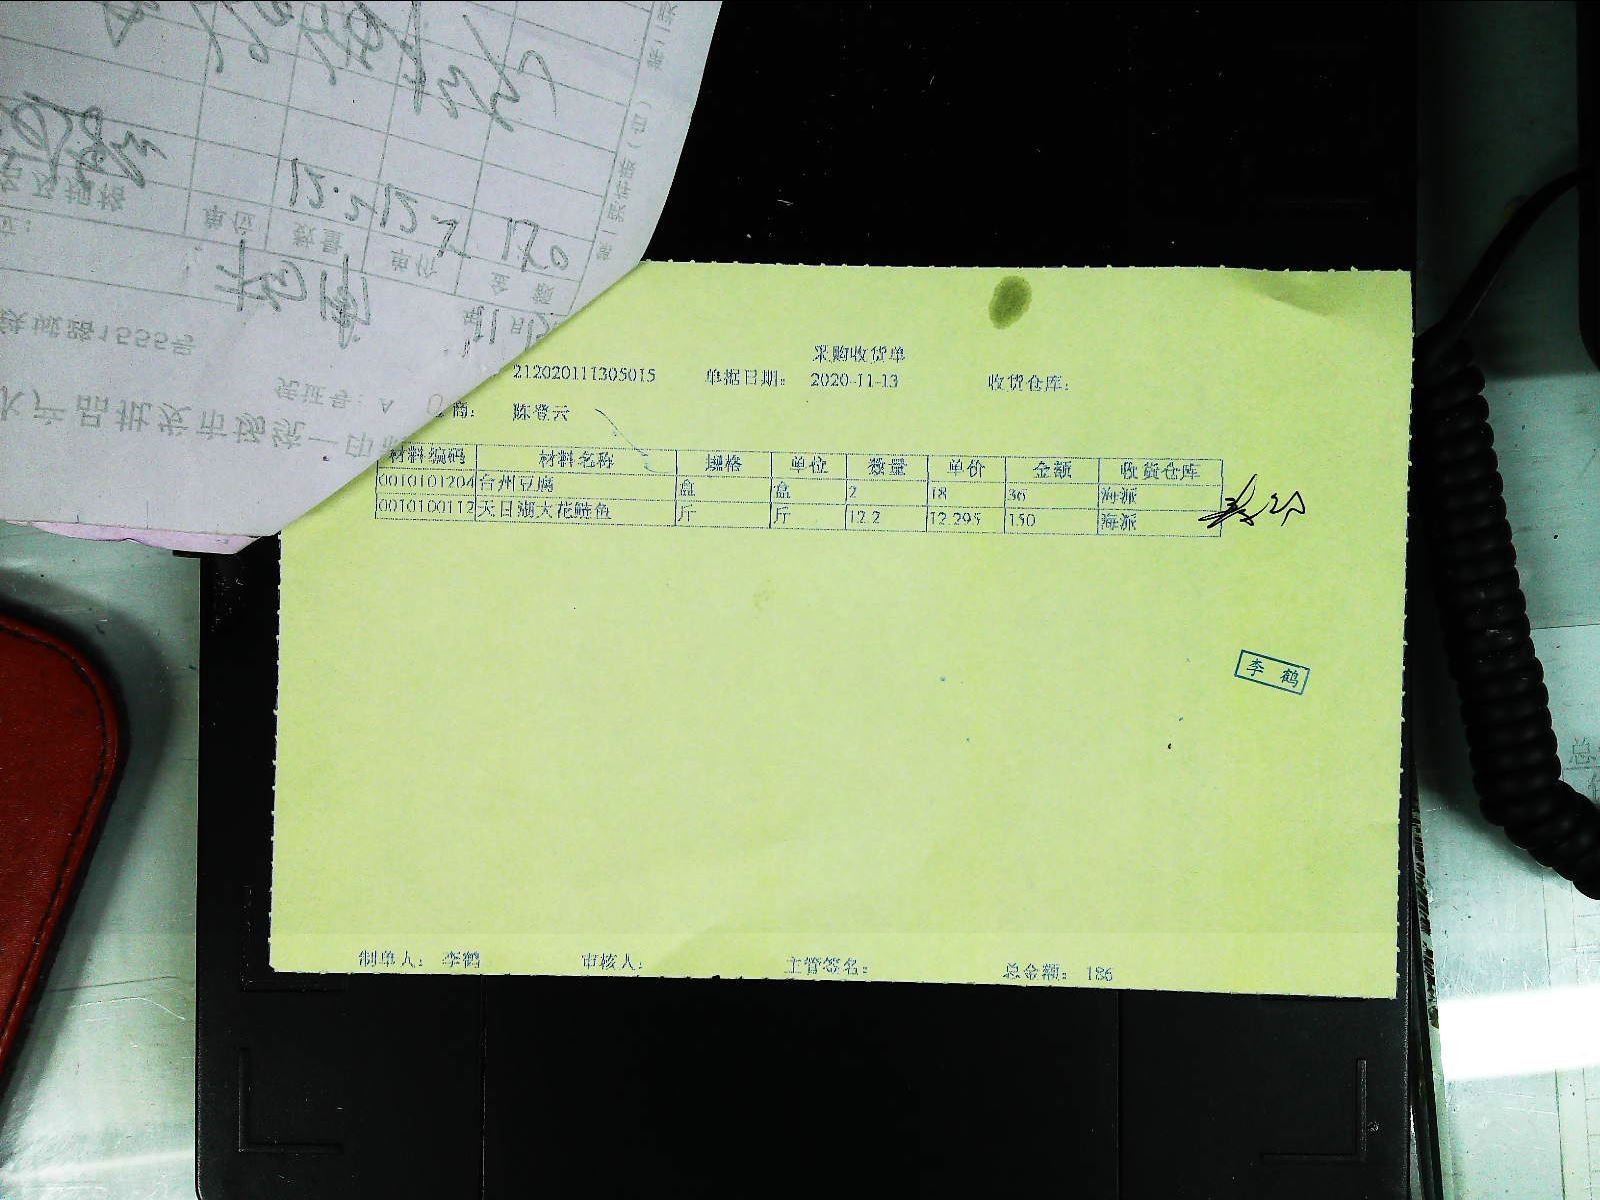 采购收货单
212020111305015 单据日期： 2020-11-13 收货仓库：
商： 陈登云
材料编码 材料名称 规格 单位 数量 单价 金额 收货仓库
0010101204 台州豆腐 盒 盒 2 18 36 海派
0010100112 天目湖大花鲢鱼 斤 斤 12.2 12.295 150 海派
李鹤
制单人： 李鹤 审核人： 主管签名： 总金额： 186
水产品批发市场统一印制
凭证号：A
铁城路1555号
单位 数量 单价 金额
12.2 150